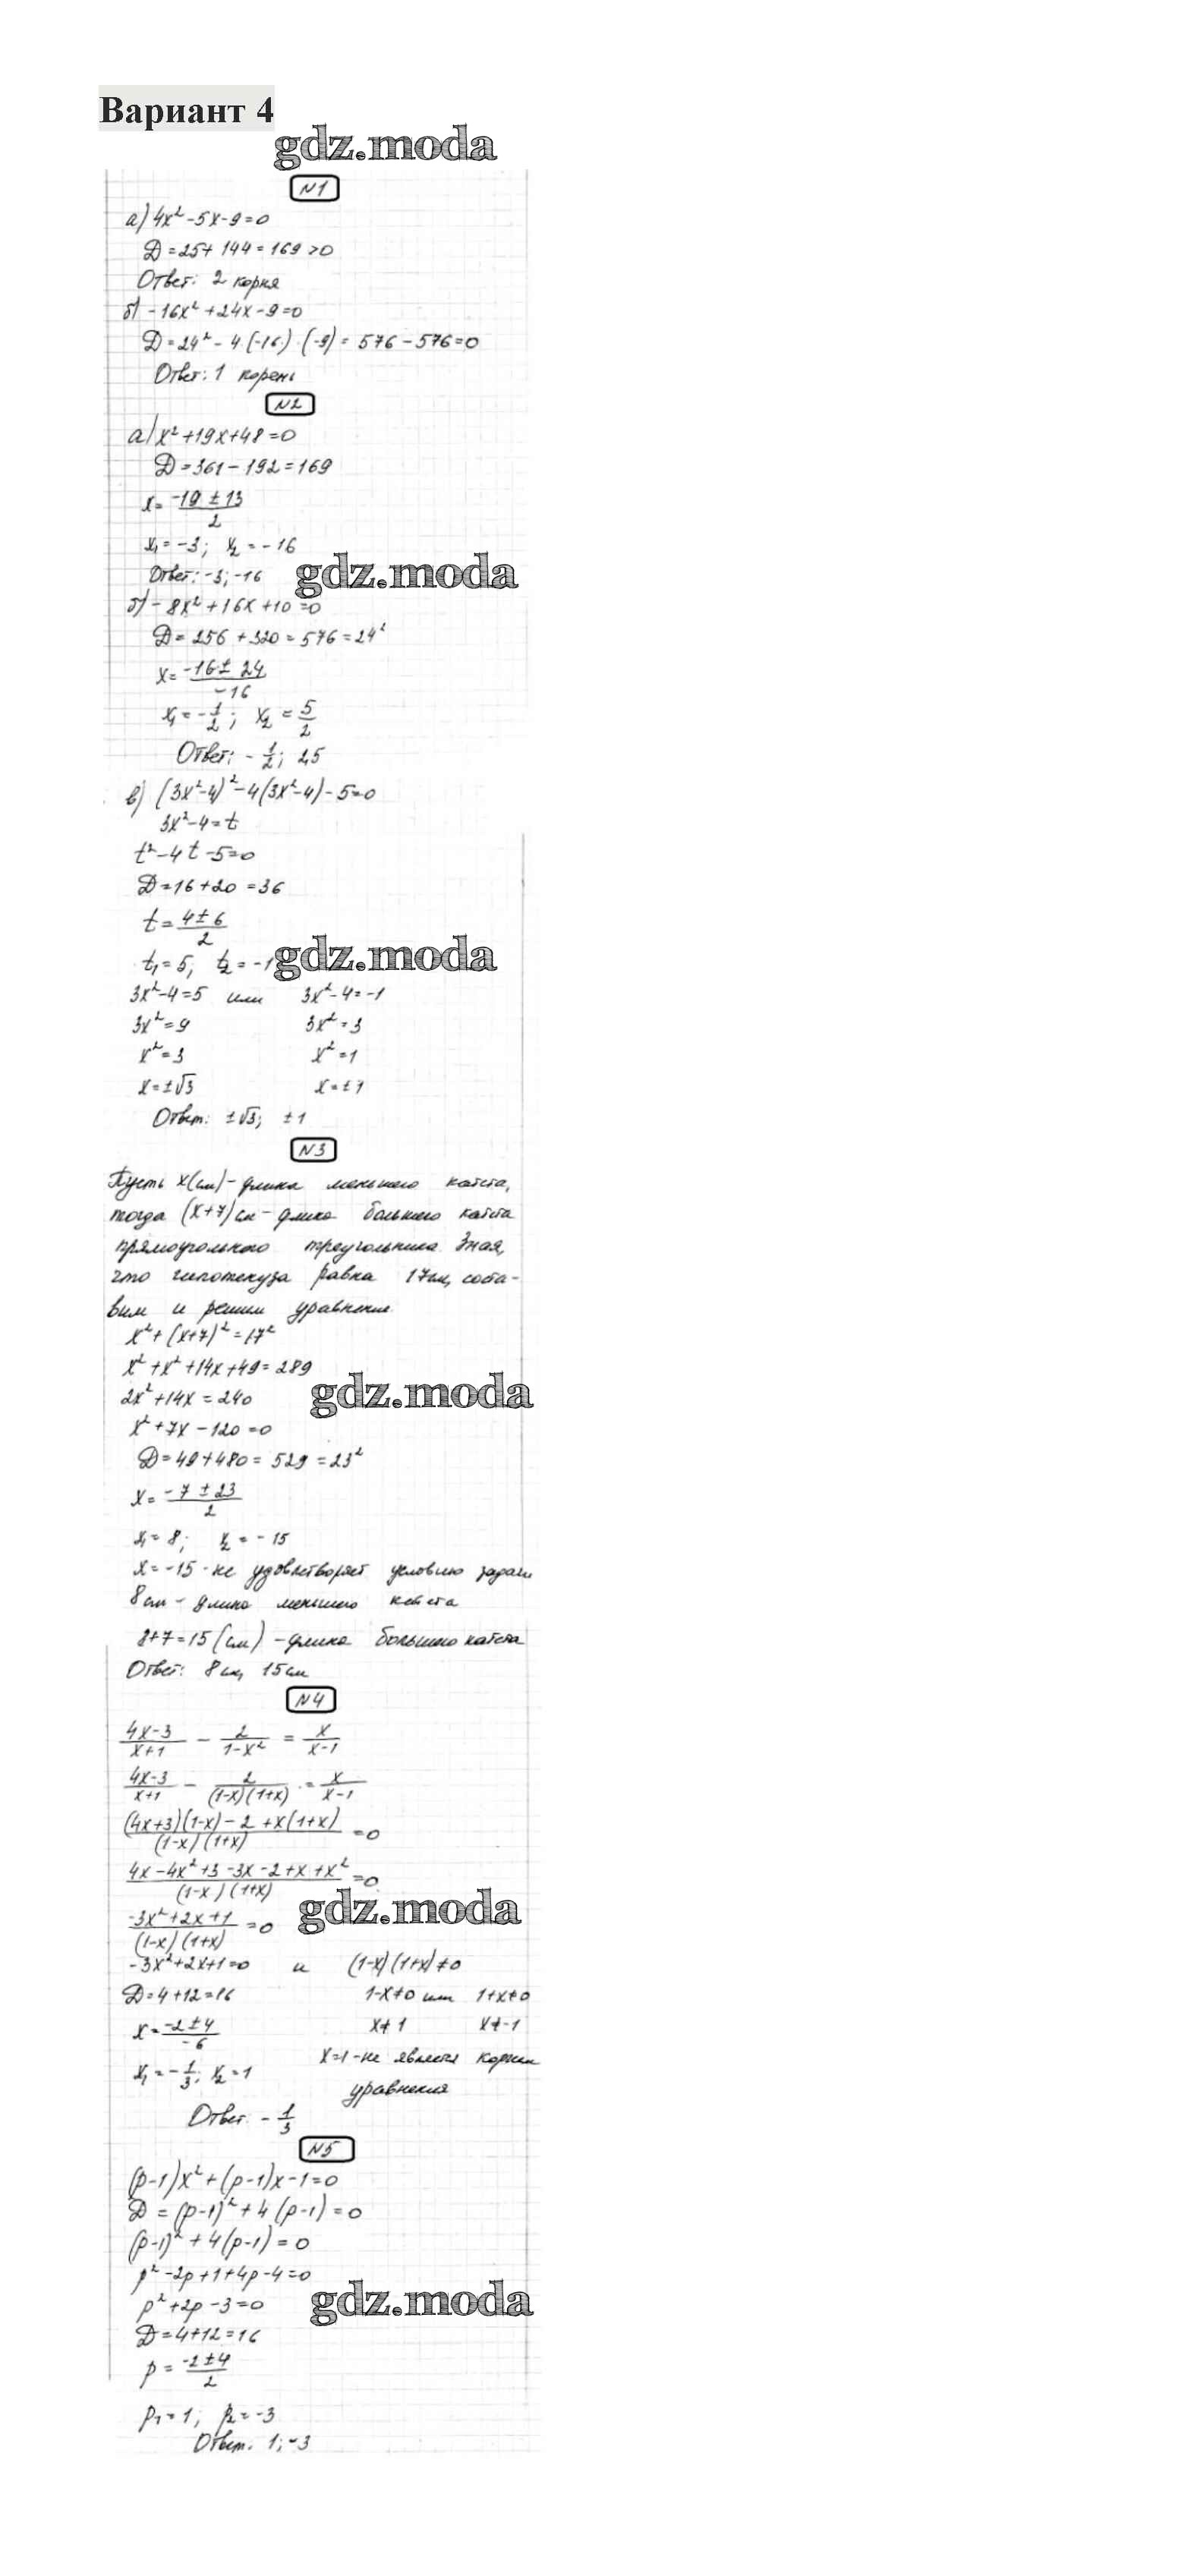 Вариант 4
gdz.moda
№1
а) 4x² - 5x - 9 = 0
D = 25 + 144 = 169 > 0
Ответ: 2 корня
б) - 16x² + 24x - 9 = 0
D = 24² - 4·(-16)·(-9) = 576 - 576 = 0
Ответ: 1 корень
№2
а) x² + 19x + 48 = 0
D = 361 - 192 = 169
x = (-19 ± 13)/2
x₁ = -3; x₂ = -16
Ответ: -3; -16
gdz.moda
б) - 8x² + 16x + 10 = 0
D = 256 + 320 = 576 = 24²
x = (-16 ± 24)/(-16)
x₁ = -1/2; x₂ = 5/2
Ответ: -1/2; 2,5
в) (3x²-4)² - 4(3x²-4) - 5 = 0
3x² - 4 = t
t² - 4t - 5 = 0
D = 16 + 20 = 36
t = (4 ± 6)/2
t₁ = 5; t₂ = -1
gdz.moda
3x² - 4 = 5 или 3x² - 4 = -1
3x² = 9 3x² = 3
x² = 3 x² = 1
x = ±√3 x = ±1
Ответ: ±√3; ±1
№3
Пусть x(см) - длина меньшего катета,
тогда (x+7)см - длина большего катета
прямоугольного треугольника. Зная,
что гипотенуза равна 17см, соста-
вим и решим уравнение
x² + (x+7)² = 17²
x² + x² + 14x + 49 = 289
2x² + 14x = 240
gdz.moda
x² + 7x - 120 = 0
D = 49 + 480 = 529 = 23²
x = (-7 ± 23)/2
x₁ = 8; x₂ = -15
x = -15 - не удовлетворяет условию задачи
8см - длина меньшего катета
8+7=15(см) - длина большего катета
Ответ: 8см, 15см
№4
(4x-3)/(x+1) - 2/(1-x²) = x/(x-1)
(4x-3)/(x+1) - 2/((1-x)(1+x)) = x/(x-1)
((4x+3)(1-x) - 2 + x(1+x))/((1-x)(1+x)) = 0
(4x - 4x² + 3 - 3x - 2 + x + x²)/((1-x)(1+x)) = 0
gdz.moda
(-3x² + 2x + 1)/((1-x)(1+x)) = 0
-3x² + 2x + 1 = 0 и (1-x)(1+x) ≠ 0
D = 4 + 12 = 16 1-x ≠ 0 или 1+x ≠ 0
x = (-2 ± 4)/(-6) x ≠ 1 x ≠ -1
x₁ = -1/3; x₂ = 1 x=1 - не является корнем
уравнения
Ответ. -1/3
№5
(p-1)x² + (p-1)x - 1 = 0
D = (p-1)² + 4(p-1) = 0
(p-1)² + 4(p-1) = 0
p² - 2p + 1 + 4p - 4 = 0
gdz.moda
p² + 2p - 3 = 0
D = 4 + 12 = 16
p = (-2 ± 4)/2
p₁ = 1; p₂ = -3
Ответ. 1; -3